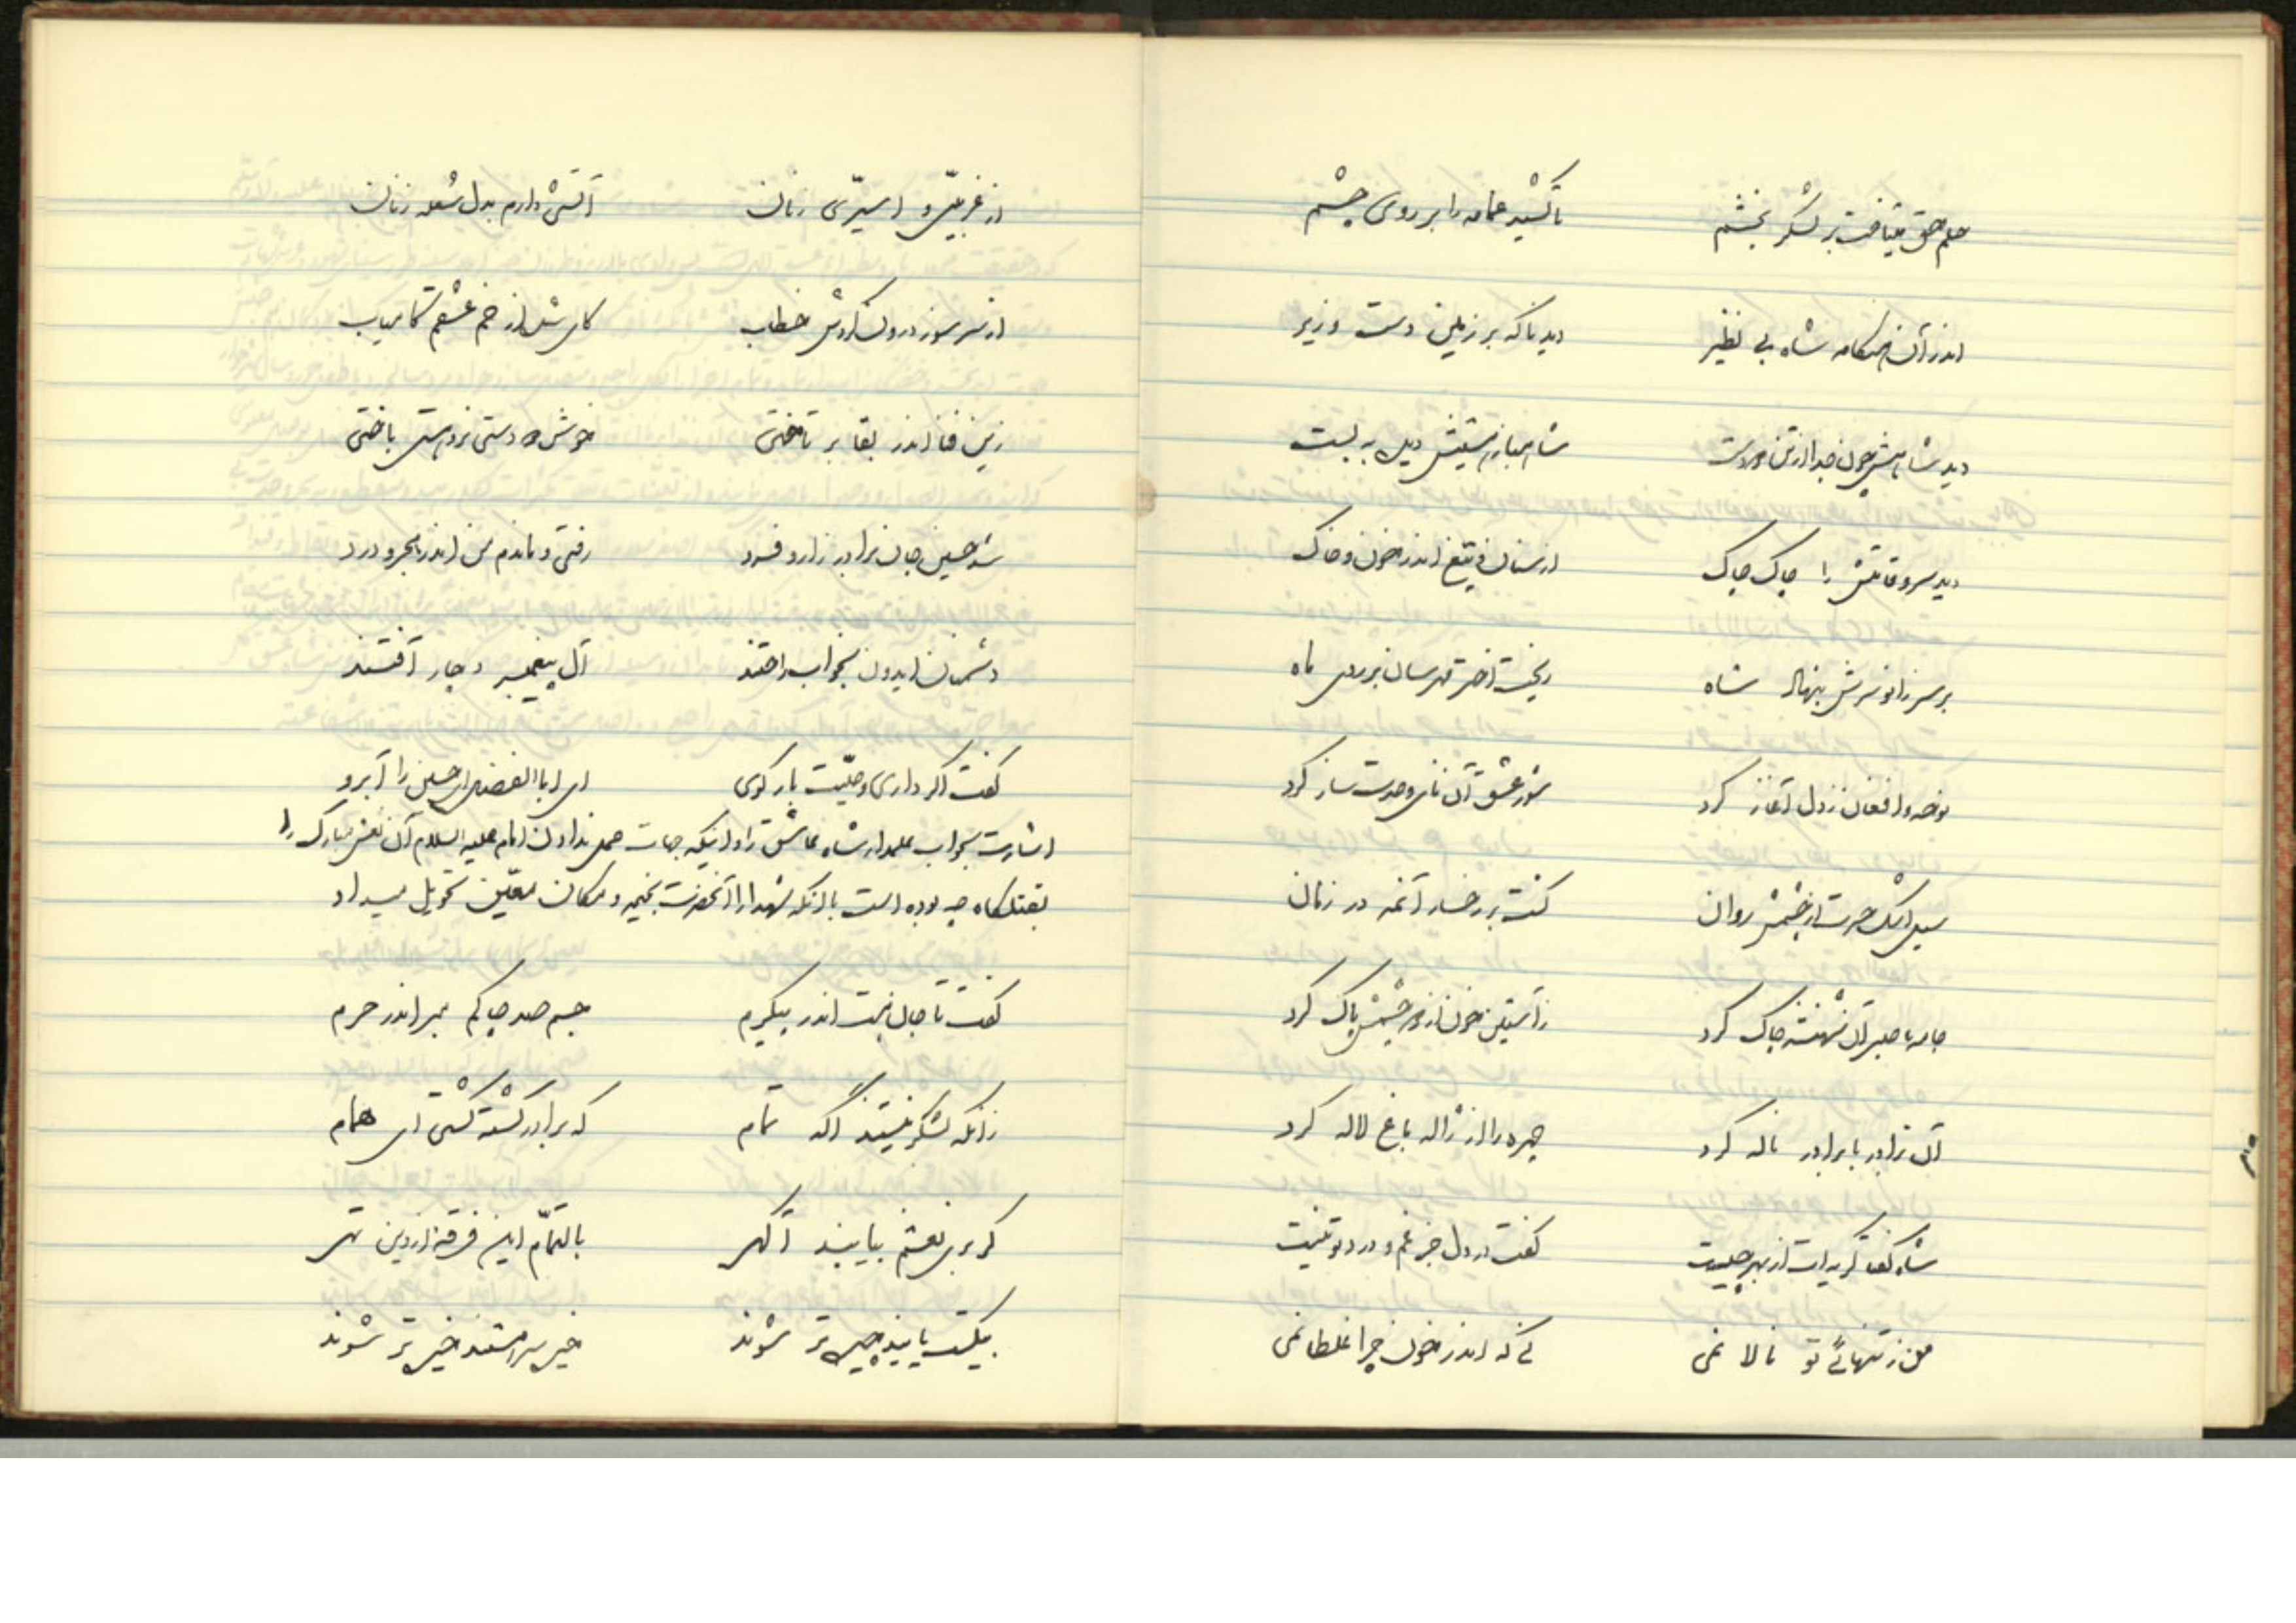 حلم حق میتافت بر لشکر بخشم تا کشید عمامه را بر روی چشم
اندر آن هنگامه شاه بی نظیر دید ناگه بر زمین دست وزیر
دید شاهش چون جدا از تن دست شاهبازم تیتش دل به بست
دید سرو قامتش را چاک چاک از سنان و تیغ اندر خون و خاک
بر سر زانو سرش بنهاد شاه ریخت اختر بر روی ماه
نوحه و افغان ز دل آغاز کرد شور عشق آن نای وحدت ساز کرد
سیل اشک حسرت از چشمش روان گشت بر رخسار آنمه در زمان
جامه با صبر آن شهنشه چاک کرد ز آستین خون از چشمش پاک کرد
آن برادر با برادر ناله کرد چهره را از ژاله باغ لاله کرد
شاه گفتا گریه ات از بهر چیست گفت در دل جز غم و درد تو نیست
من ز تنهائی تو نالانمی نی که اندر خون چرا غلطانمی
از غریبی و اسیری زنان آتشی دارم بدل شعله زنان
از سر سوز درون کردش خطاب کای شد از خم عشقم کامیاب
زین فنا اندر بقا بر تاختی خوش دستی نرد هستی باختی
شد حسین جان برادر زار و فرد رفتی و ماندم من اندر هجر و درد
دشمنان ایدون بخواب راحتند آل پیغمبر دچار آفتند
گفت اگر داری وصیت باز گوی ای ابا الفضل ای حسین را آبرو
اشارت بجواب علمدار شاه عاشق را و اینکه جهات حمل ندادن امام علیه السلام آن نعش مبارک را
بقتلگاه چه بوده است با آنکه شهدا را آنحضرت بخیمه و مکان معین تحویل میداد
گفت تا جان هست اندر پیکرم جسم صد چاکم مبر اندر حرم
زانکه لشکر نیستند آگه تمام که برادر کشته گشتی ای همام
گر بر نعشم بیابند آگهی بالتمام این فرقه از دین تهی
بیگمت یابند چیره تر شوند خیره سر هستند خیره تر شوند